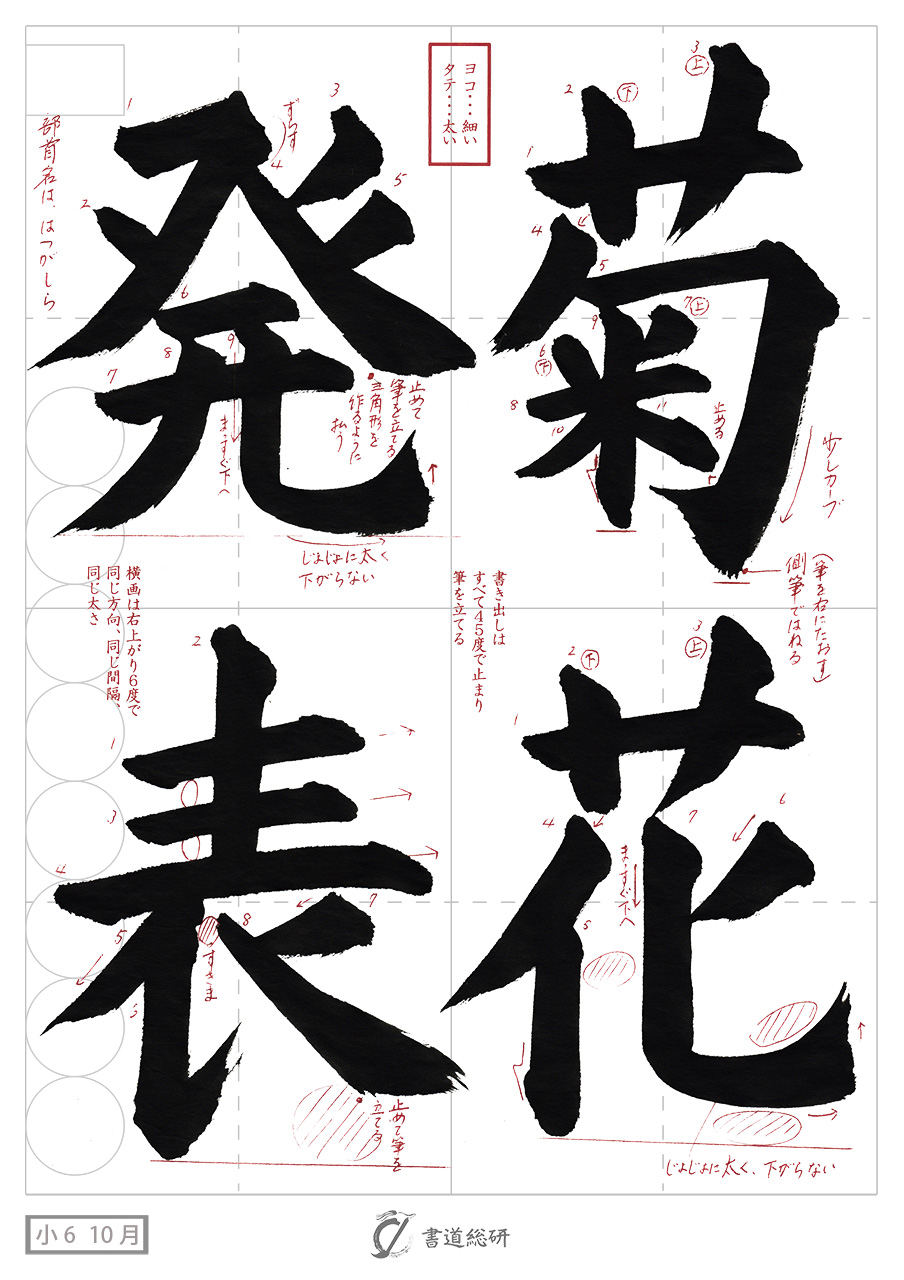 菊花
発表
ヨコ・・・細い
タテ・・・太い
3
上
2
下
1
4
5
7
上
9
6
下
8
10
11
止める
少しカーブ
(筆を右にたおす)
側筆ではねる
1
2
3
ずらす
4
5
部首名は、はつがしら
6
9
8
7
まっすぐ下へ
止めて
筆を立てる
三角形を
作るように
払う
じょじょに太く
下がらない
書き出しは
すべて45度で止まり
筆を立てる
横画は右上がり6度で
同じ方向、同じ間隔、
同じ太さ
3
上
2
下
1
4
7
6
まっすぐ下へ
5
じょじょに太く、下がらない
2
1
3
4
7
8
5
すきま
6
止めて筆を
立てる
小6 10月
書道総研